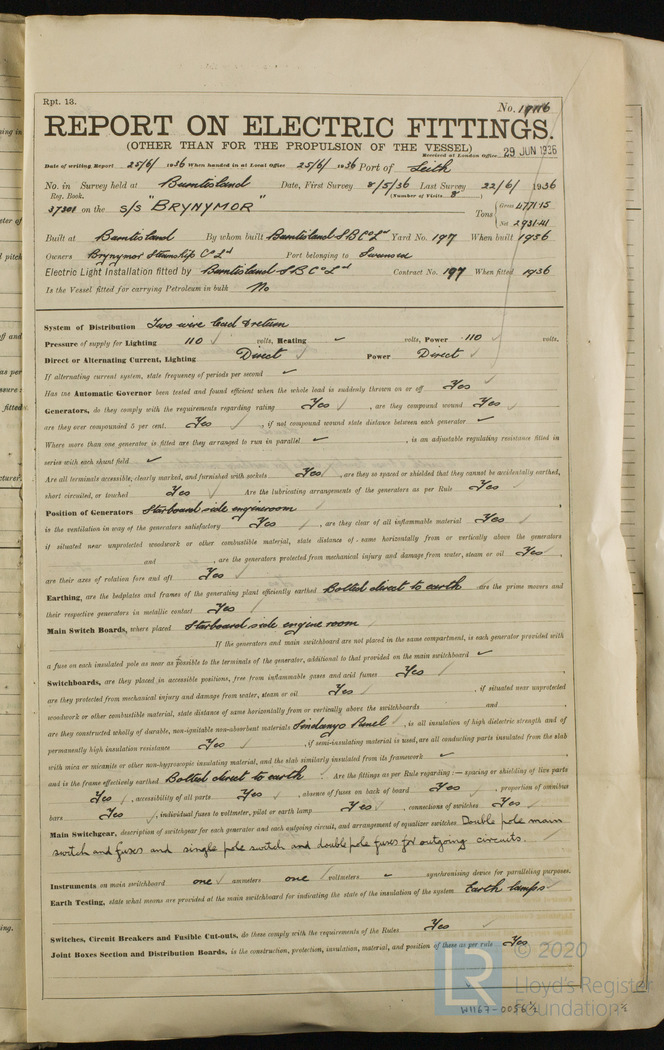 Rpt. 13.
No. 
REPORT ON ELECTRIC FITTINGS.
(OTHER THAN FOR THE PROPULSION OF THE VESSEL)
Received at London Office 29 JUN 1936
Date of writing Report 25/6/ 1936 When handed in at Local Office 25/6/ 1936 Port of Leith
No. in Survey held at Burntisland Date, First Survey 8/5/36 Last Survey 22/6/ 1936
Reg. Book. (Number of Visits 8
37301 on the s/s "BRYNYMOR" Tons { Gross 4771.15
Net 2931.41
Built at Burntisland By whom built Burntisland S B Co Ld Yard No. 197 When built 1936
Owners Brynymor Steamship Co Ld Port belonging to Swansea
Electric Light Installation fitted by Burntisland S.B Co Ld Contract No. 197 When fitted 1936
Is the Vessel fitted for carrying Petroleum in bulk No
System of Distribution Two wire lead & return
Pressure of supply for Lighting 110 volts, Heating ✓ volts, Power 110 volts.
Direct or Alternating Current, Lighting Direct Power Direct
If alternating current system, state frequency of periods per second ✓
Has the Automatic Governor been tested and found efficient when the whole load is suddenly thrown on or off Yes
Generators, do they comply with the requirements regarding rating Yes , are they compound wound Yes
are they over compounded 5 per cent. Yes , if not compound wound state distance between each generator ✓
Where more than one generator is fitted are they arranged to run in parallel ✓ , is an adjustable regulating resistance fitted in
series with each shunt field ✓
Are all terminals accessible, clearly marked, and furnished with sockets Yes , are they so spaced or shielded that they cannot be accidentally earthed,
short circuited, or touched Yes Are the lubricating arrangements of the generators as per Rule Yes
Position of Generators Starboard side engineroom
is the ventilation in way of the generators satisfactory Yes , are they clear of all inflammable material Yes
if situated near unprotected woodwork or other combustible material, state distance of same horizontally from or vertically above the generators
and , are the generators protected from mechanical injury and damage from water, steam or oil Yes
are their axes of rotation fore and aft Yes
Earthing, are the bedplates and frames of the generating plant efficiently earthed Bolted direct to earth are the prime movers and
their respective generators in metallic contact Yes
Main Switch Boards, where placed Starboard side engine room
If the generators and main switchboard are not placed in the same compartment, is each generator provided with
a fuse on each insulated pole as near as possible to the terminals of the generator, additional to that provided on the main switchboard ✓
Switchboards, are they placed in accessible positions, free from inflammable gases and acid fumes Yes
are they protected from mechanical injury and damage from water, steam or oil Yes , if situated near unprotected
woodwork or other combustible material, state distance of same horizontally from or vertically above the switchboards and ,
are they constructed wholly of durable, non-ignitable non-absorbent materials Sindanyo Panel , is all insulation of high dielectric strength and of
permanently high insulation resistance Yes , if semi-insulating material is used, are all conducting parts insulated from the slab
with mica or micanite or other non-hygroscopic insulating material, and the slab similarly insulated from its framework ✓ ,
and is the frame effectively earthed Bolted direct to earth . Are the fittings as per Rule regarding:— spacing or shielding of live parts
Yes , accessibility of all parts Yes , absence of fuses on back of board Yes , proportion of omnibus
bars Yes , individual fuses to voltmeter, pilot or earth lamp Yes , connections of switches Yes
Main Switchgear, description of switchgear for each generator and each outgoing circuit, and arrangement of equalizer switches Double pole main
switch and fuses and single pole switch and double pole fuses for outgoing circuits.
Instruments on main switchboard one ammeters one voltmeters ✓ synchronising device for paralleling purposes.
Earth Testing, state what means are provided at the main switchboard for indicating the state of the insulation of the system Earth lamps
Switches, Circuit Breakers and Fusible Cut-outs, do these comply with the requirements of the Rules Yes
Joint Boxes Section and Distribution Boards, is the construction, protection, insulation, material, and position of these as per rule Yes
LR
© 2020
Lloyd's Register
Foundation
W1167-0056½